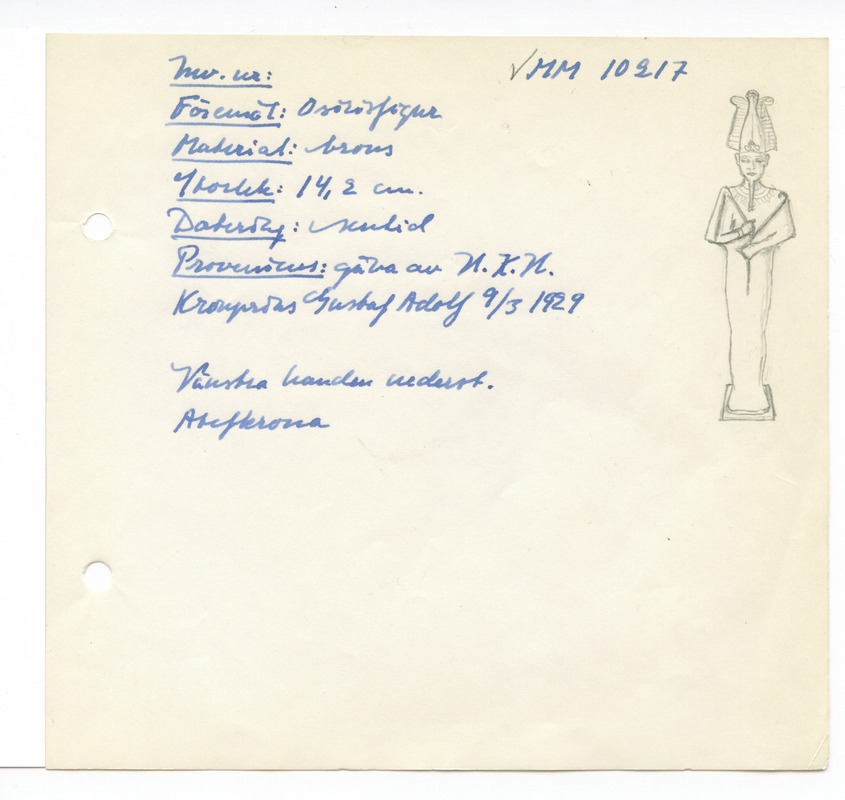 Inv. nr: MM 10217
Föremål: Osirisfigur
Material: brons
Storlek: 14,2 cm.
Datering: sentid
Proveniens: gåva av H. K. H.
Kronprins Gustaf Adolf 9/3 1929
Vänstra handen nederst.
Atefkrona